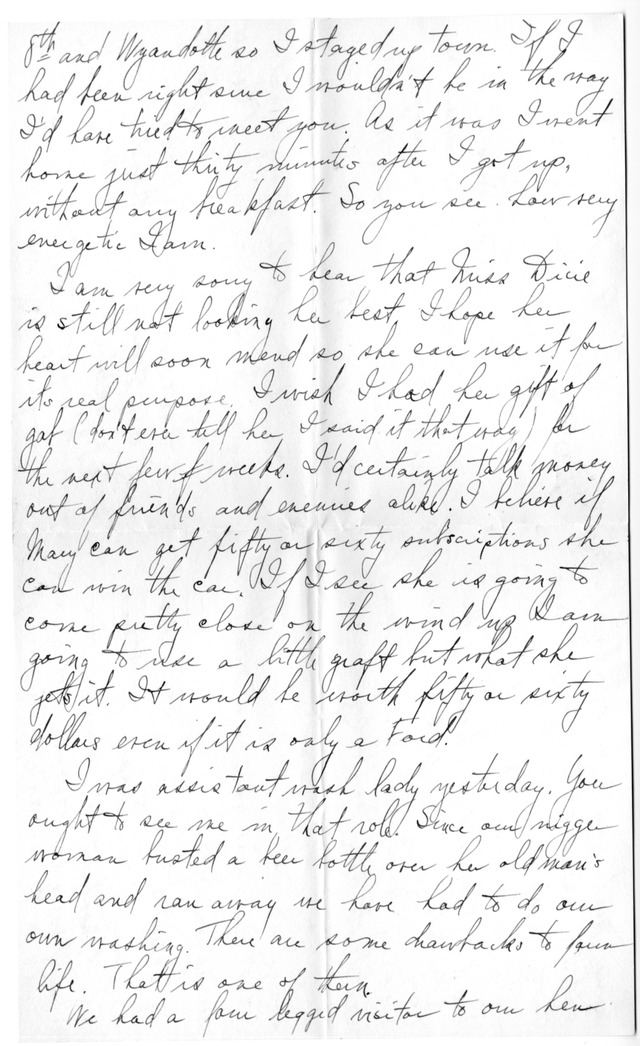 8th and Wyandotte so I stayed up town. If I
had been right sure I wouldn't be in the way
I'd have tried to meet you. As it was I went
home just thirty minutes after I got up,
without any breakfast. So you see how very
energetic I am.
I am very sorry to hear that Miss Dicie
is still not looking her best. I hope her
heart will soon mend so she can use it for
it's real purpose. I wish I had her gift of
gab (don't ever tell her I said it that way) for
the next few weeks. I'd certainly talk money
out of friends and enemies alike. I believe if
Mary can get fifty or sixty subscriptions she
can win the car. If I see she is going to
come pretty close on the wind up I am
going to use a little graft but what she
gets it. It would be worth fifty or sixty
dollars even if it is only a Ford.
I was assistant wash lady yesterday. You
ought to see me in that role. Since our nigger
woman busted a beer bottle over her old man's
head and ran away we have had to do our
own washing. There are some drawbacks to farm
life. That is one of them.
We had a four legged visitor to our hen